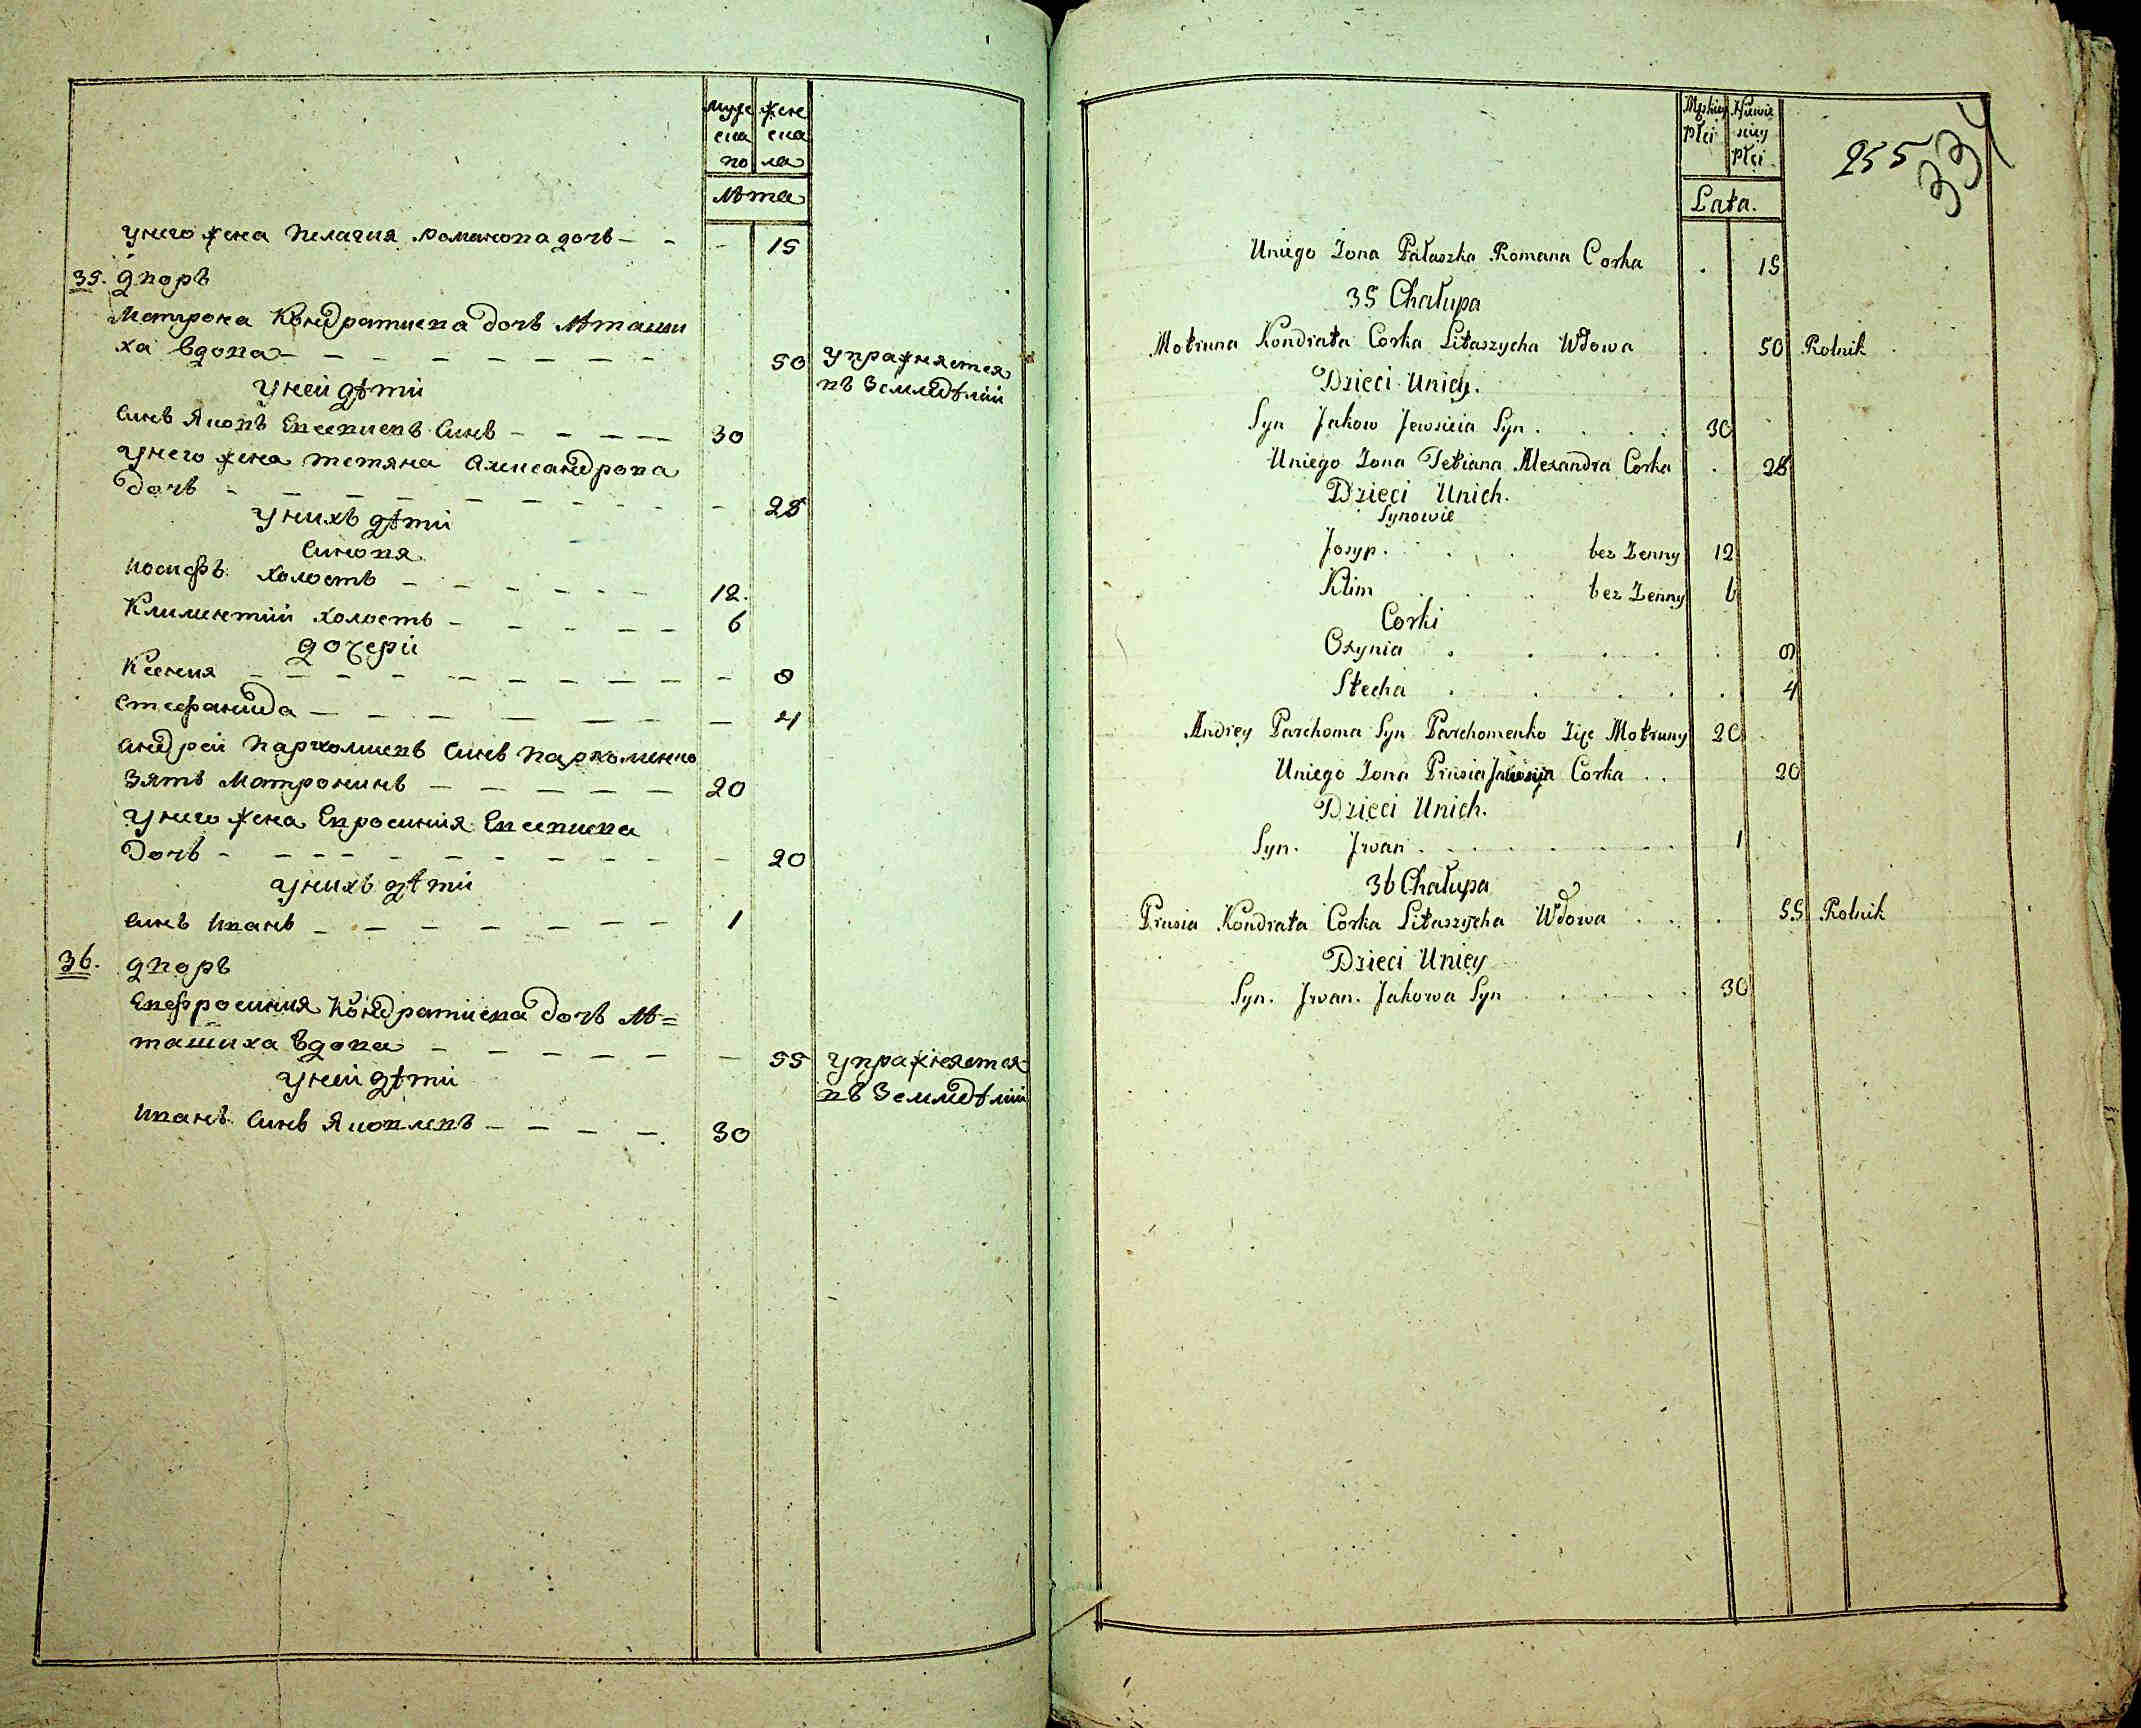 муже
ска
по
жен
ска
ла
Лѣта
унего жена Пелагия романова дочь 15
35. дворъ
Матрона Кондратиева дочь Лѣташи
ха вдова 50 упражняется
въ Земледѣлiи
уней дѣти
Синъ Яковъ Евсевиевъ Синъ 30
унего жена тетяна Александрова
дочь 28
унихъ дѣти
Синовя
иосифъ холостъ 12.
Климентiй холостъ 6
дочери
Ксения 8
Стефанида 4
андрей Пархомиевъ Синъ пархоменко
Зять Матронинъ 20
унего жена Епросиния Евсевиева
дочь 20
унихъ дѣти
Синъ иванъ 1
36. дворъ
Евфросиния Кондратiева дочь Лѣ=
ташиха вдова 55 упражняется
въ Земледѣлiи
уней дѣти
иванъ Синъ Яковлевъ 30
Męzkiey
Płci
Niewie
sciey
Płci
Lata.
255
334
Uniego Zona Pałaszka Romana Corka . 15
35 Chałupa
Motruna Kondrata Corka Litaszycha Wdowa . 50 Rolnik
Dzieci Uniey.
Syn Jakow Jewsieia Syn . 30
Uniego Zona Tetiana Alexandra Corka . 28
Dzieci Unich.
Synowie
Josyp. bez Zenny 12
Klim bez Zenny 6
Corki
Oxynia 8
Stecha 4
Andrey Parchoma Syn Parchomenko Zięc Motruny 20
Uniego Zona Prusia Corka 20
Dzieci Unich.
Syn. Jwan 1
36 Chałupa
Prusia Kondrata Corka Litaszycha Wdowa . 55 Rolnik
Dzieci Uniey
Syn. Jwan. Jakowa Syn 30